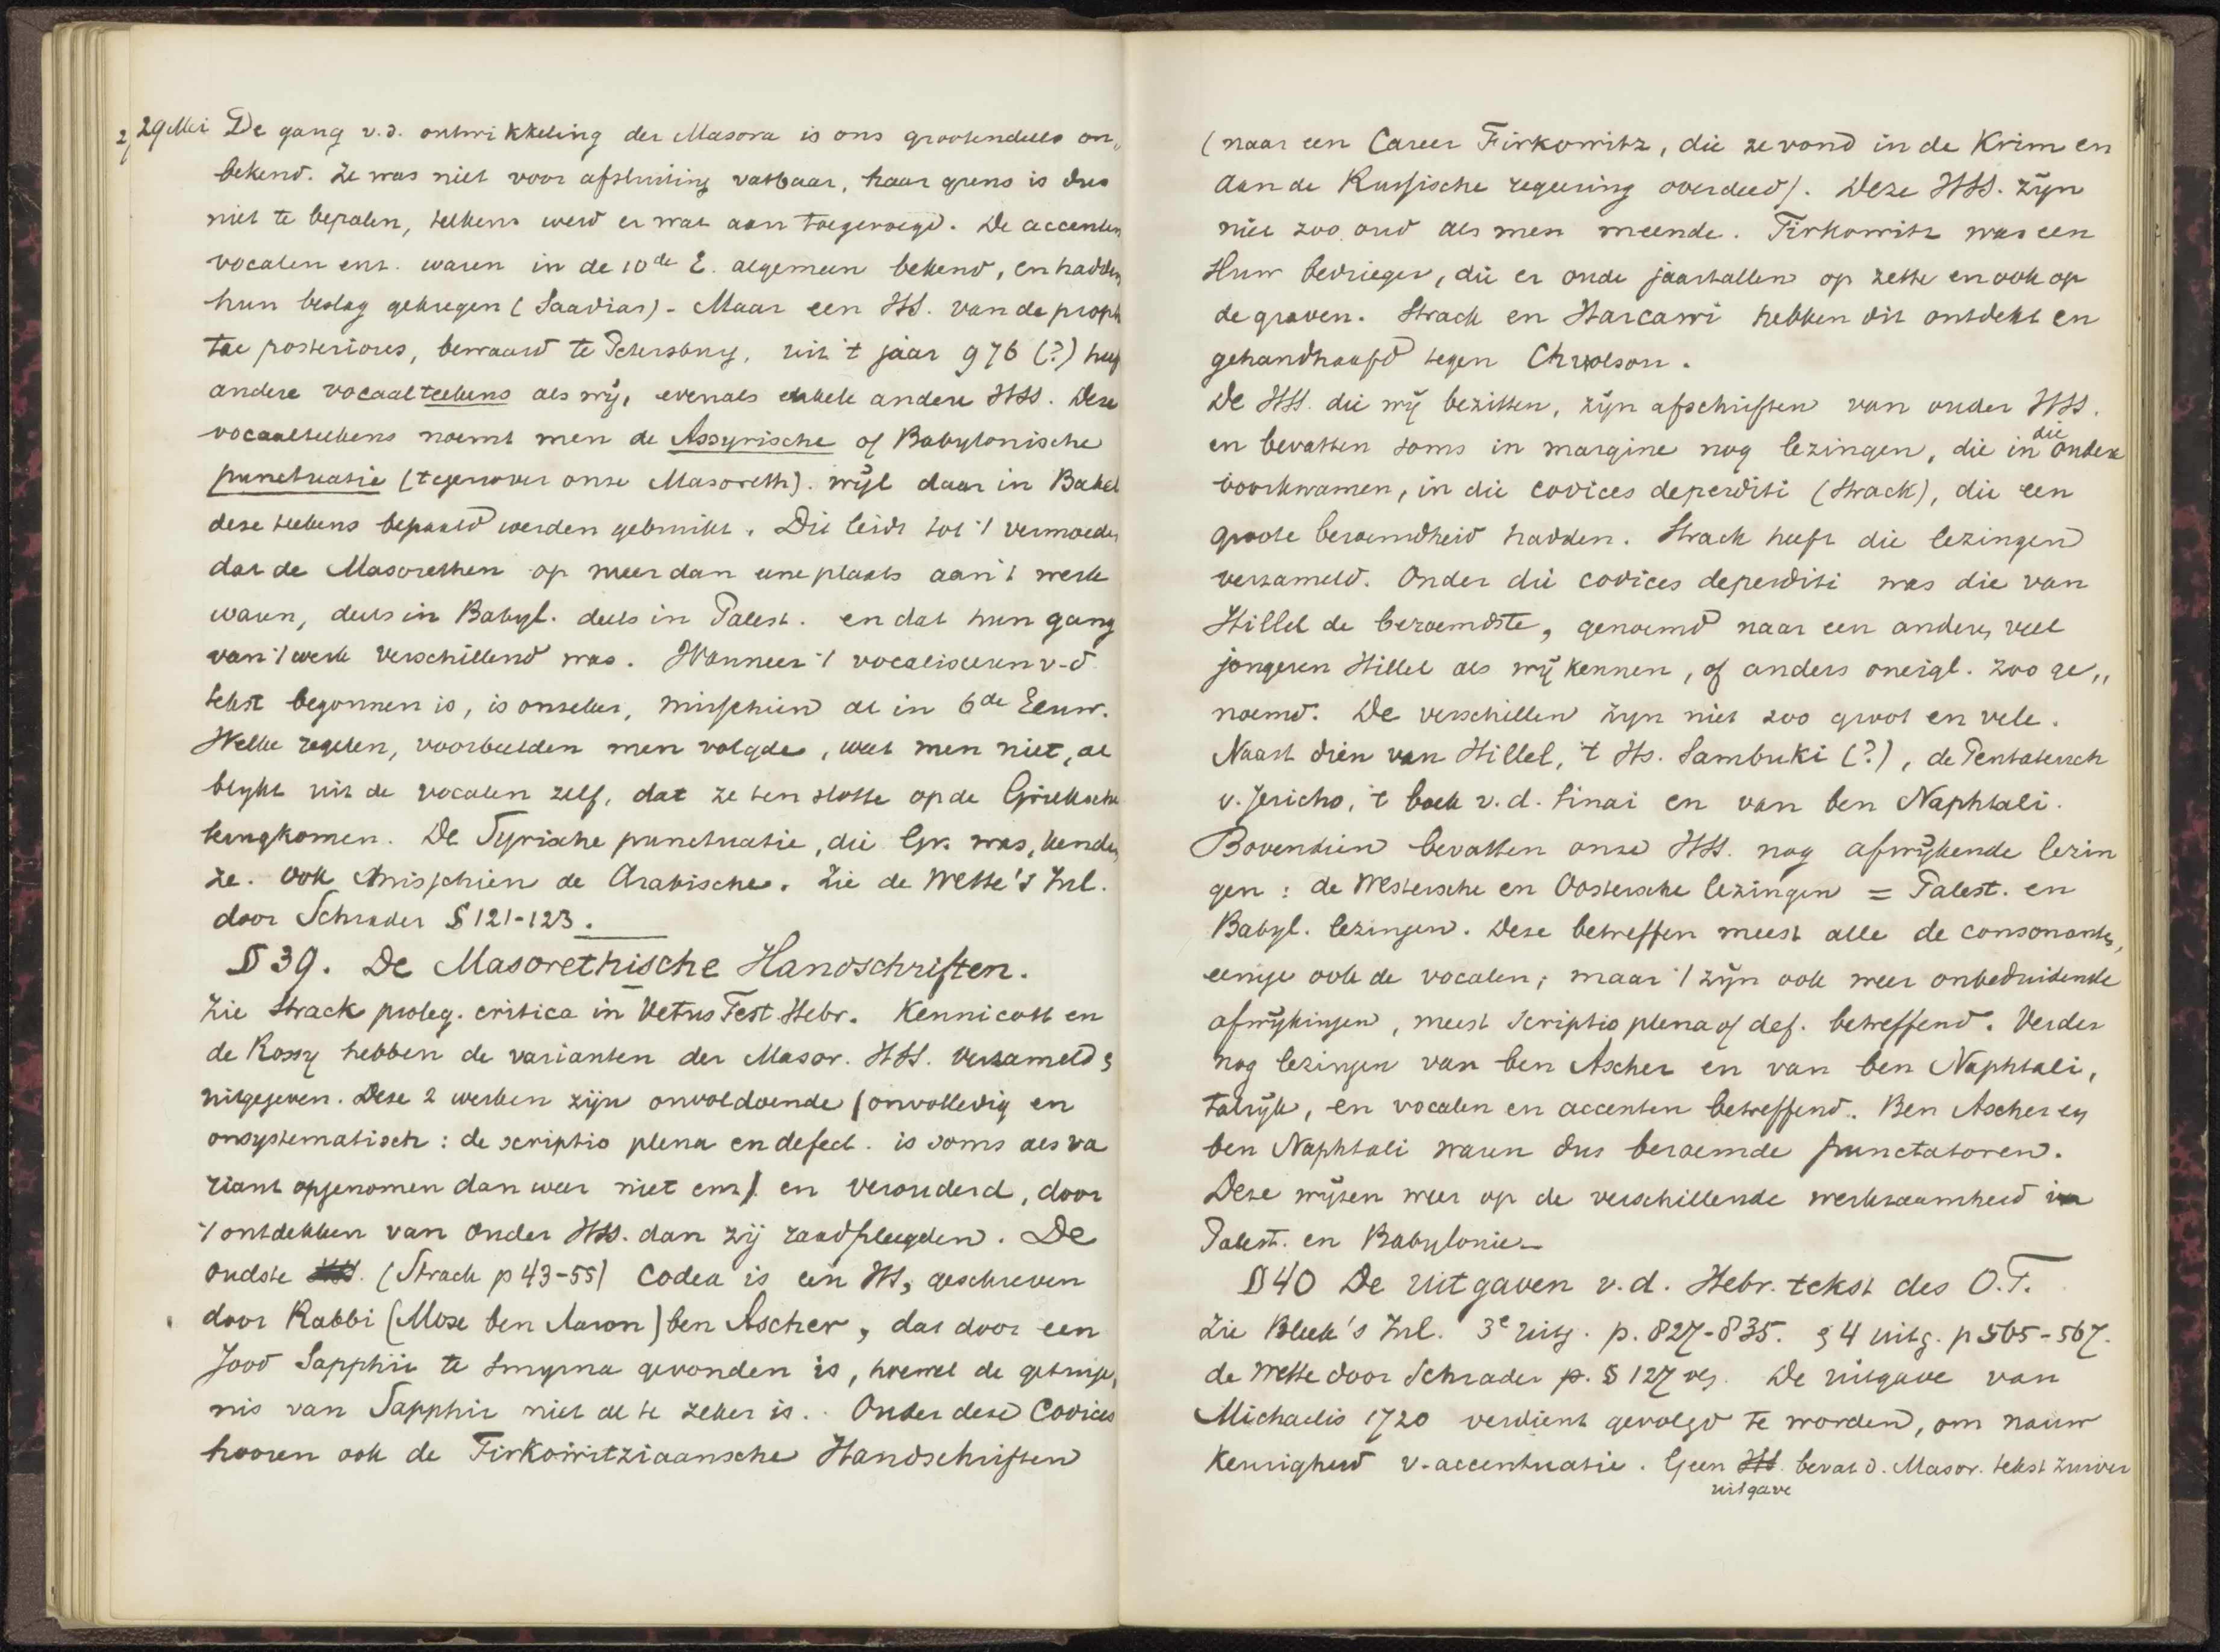 29 Mei De gang v.d. ontwikkeling der Masora is ons grootendeels on„
bekend. Ze was niet voor afsluiting vatbaar, haar grens is dus
niet te bepalen, telkens werd er wat aan toegevoegd. De accenten
vocalen enz. waren in de 10de E. algemeen bekend, en hadden
hun beslag gekregen (Saadias) - Maar een HS. van de proph
tae posteriores, bewaard te Petersburg, uit 't jaar 976 (?) heeft
andere vocaalteekens als wij, evenals enkele andere HSS. Deze
vocaalteekens noemt men de Assyrische of Babylonische
punctuatie (tegenover onze Masoreth). wijl daar in Babel
deze teekens bepaald werden gebruikt. Dit leidt tot 't vermoeden
dat de Masorethen op meer dan eene plaats aan 't werk
waren, deels in Babyl. deels in Palest. en dat hun gang
van 't werk verschillend was. Wanneer 't vocaliseren v.d.
tekst begonnen is, is onzeker, misschien al in 6de Eeuw.
Welke regelen, voorbeelden men volgde, weet men niet, al
blijkt uit de vocalen zelf, dat ze ten slotte op de Grieksche
terugkomen. De Syrische punctuatie, die Gr. was, kenden
ze. Ook misschien de Arabische. Zie de Wette's Inl.
door Schrader § 121-123.
§ 39. De Masorethische Handschriften.
Zie Strack proleg. critica in Vetus Test Hebr. Kennicott en
de Rossy hebben de varianten der Masor. HSS. verzameld &
uitgegeven. Deze 2 werken zijn onvoldoende (onvolledig en
onsystematisch: de scriptio plena en defect. is soms als va
riant opgenomen dan weer niet enz) en verouderd, door
't ontdekken van ouder HSS. dan zij raadpleegden. De
oudste HSS. (Strack p 43-55) Codex is een HS, geschreven
door Rabbi (Mose ben Aaron) ben Ascher, dat door een
Jood Sapphir te Smyrna gevonden is, hoewel de getuige„
nis van Sapphir niet al te zeker is. Onder deze Codices
hooren ook de Firkowitziaansche Handschriften
(naar een Career Firkowitz, die ze vond in de Krim en
aan de Russische regeering overdeed). Deze HSS. zijn
niet zoo oud als men meende. Firkowitz was een
ruw bedrieger, die er oude jaartallen op zette en ook op
de graven. Strack en Harcawi hebben dit ontdekt en
gehandhaafd tegen Chwolson.
De HSS. die wij bezitten, zijn afschriften van ouder HSS.
en bevatten soms in margine nog lezingen, die in die andere
voorkwamen, in die codices deperditi (Strack), die een
groote beroemdheid hadden. Strack heeft die lezingen
verzameld. Onder die codices deperditi was die van
Hillel de beroemdste, genoemd naar een andere, veel
jongeren Hillel als wij kennen, of anders oneigl. zoo ge„
noemd. De verschillen zijn niet zoo groot en vele.
Naast dien van Hillel, 't Hs. Sambuki (?), de Pentateuch
v. Jericho, 't boek v.d. Sinai en van ben Naphtali.
Bovendien bevatten onze HSS. nog afwijkende lezin
gen: de Westersche en Oostersche lezingen = Palest. en
Babyl. lezingen. Deze betreffen meest alle de consonanten,
eenige ook de vocalen; maar 't zijn ook weer onbeduidende
afwijkingen, meest scriptio plena of def. betreffend. Verder
nog lezingen van ben Ascher en van ben Naphtali,
talrijk, en vocalen en accenten betreffend. Ben Ascher en
ben Naphtali waren dus beroemde punctatoren.
Deze wijzen weer op de verschillende werkzaamheid in
Palest. en Babylonie
§ 40 De uitgaven v.d. Hebr. tekst des O.T.
Zie Bleek's Inl. 3e uitg. p. 827-835. & 4 uitg. p 565-567.
de Wette door Schrader p. § 127 vlg. De uitgave van
Michaelis 1720 verdient gevolgd te worden, om nauw
keurigheid v. accentuatie. Geen HS. bevat d. Masor. tekst zuiver
uitgave